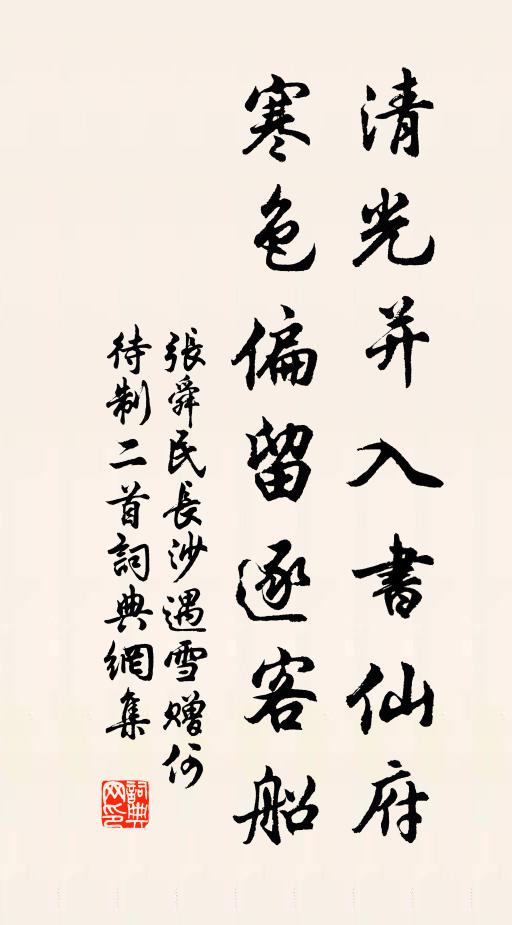 清光并入書仙府
寒色偏留逐客船
張舜民長沙遇雪贈何
待制二首詞典網集
詞典网印